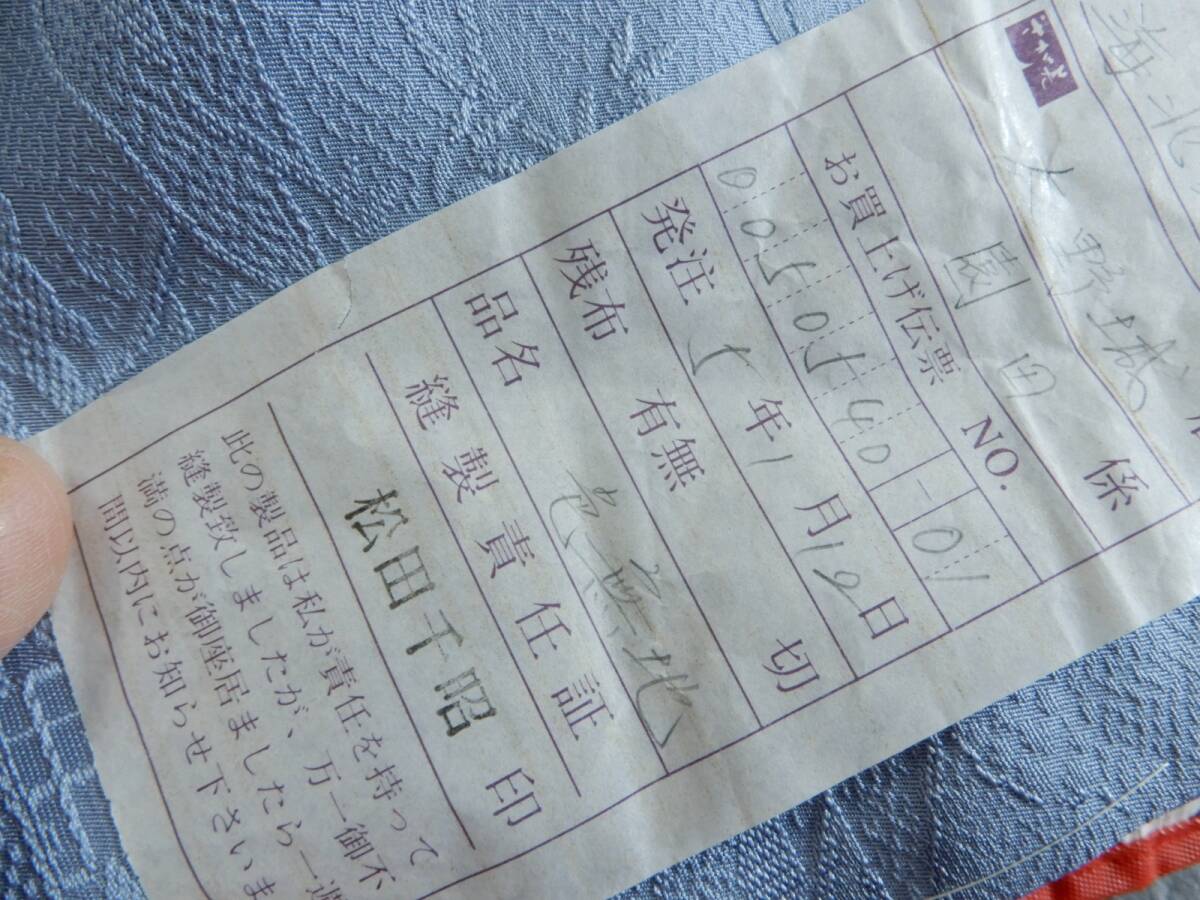 大野城
園田 係
お買上げ伝票 NO.
0050540-01
発注 5年1月19日
残布 有無 切
品名 色無地
縫製責任証
松田千昭 印
此の製品は私が責任を持って
縫製致しましたが、万一御不
満の点が御座居ましたら一週
間以内にお知らせ下さいま